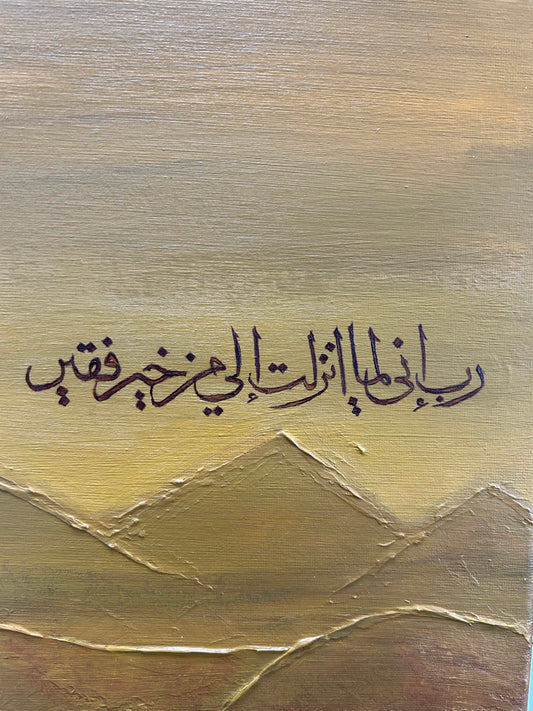 رب إني لما انزلت إلي من خير فقير